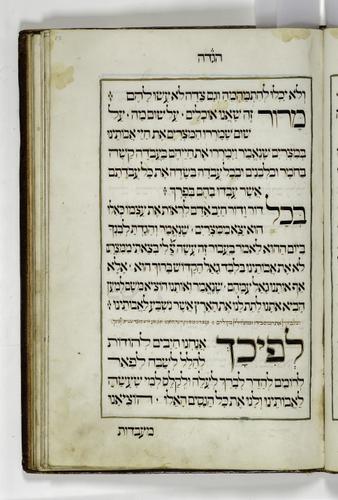 הגדה
ולא יכלו להתמהמה וגם צדה לא עשו להם
מרור זה שאנו אוכלים על שום מה על
שום שמררו המצרים את חיי אבותינו
במצרים שנאמר וימררו את חייהם בעבדה קשה
בחמר ובלבנים ובכל עבדה בשדה את כל עבדתם
אשר עבדו בהם בפרך
בכל דור ודור חייב אדם לראות את עצמו כאלו
הוא יצא ממצרים שנאמר והגדת לבנך
ביום ההוא לאמר בעבור זה עשה יי לי בצאתי ממצרים
לא את אבותינו בלבד גאל הקדוש ברוך הוא אלא
אף אותנו גאל עמהם שנאמר ואותנו הוציא משם למען
הביא אותנו לתת לנו את הארץ אשר נשבע לאבותינו
לפיכך אנחנו חייבים להודות
להלל לשבח לפאר
לרומם להדר לברך לעלה ולקלס למי שעשה
לאבותינו ולנו את כל הנסים האלו הוציאנו
מעבדות